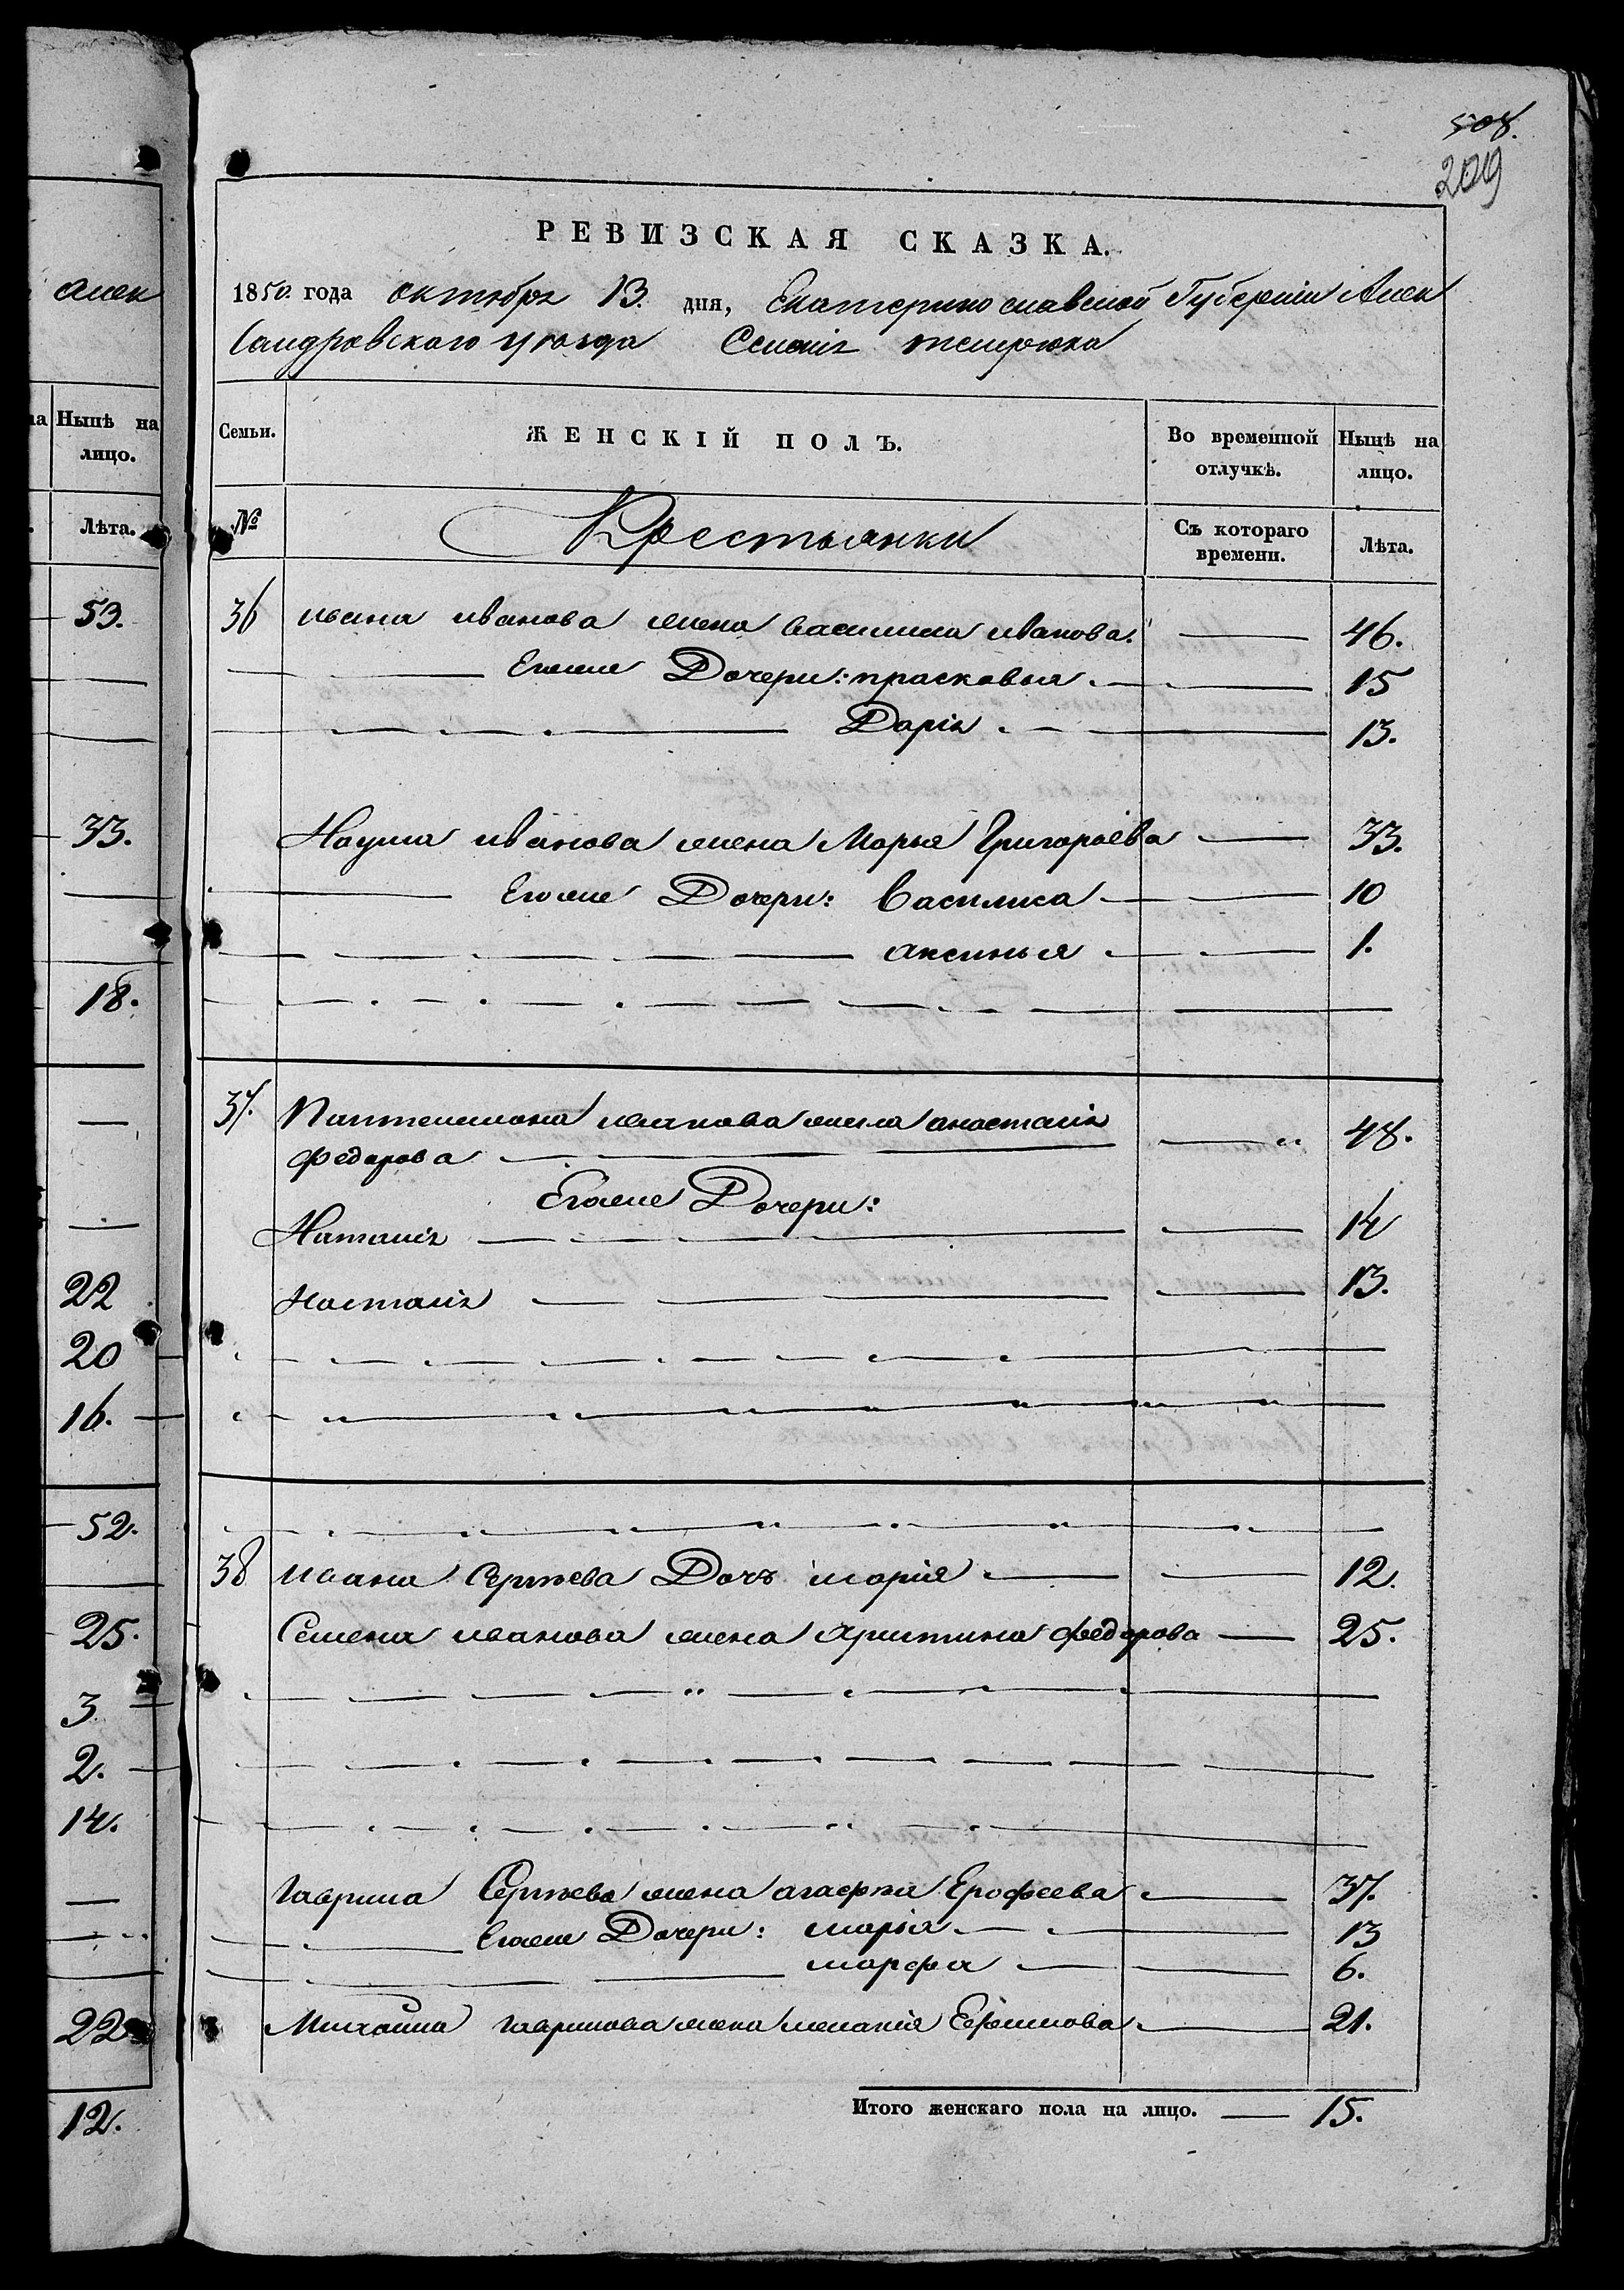 508.
209
РЕВИЗСКАЯ СКАЗКА.
1850 года октября 13 дня, Екатеринославской Губерніи Алек
сандровского уѣзда Селенія темрюка
Семьи.
ЖЕНСКІЙ ПОЛЪ.
Во временной отлучкѣ.
Нынѣ на лицо.
№
Крестьянки
Съ котораго времени.
Лѣта.
36 ивана иванова жена василиса иванова. 46.
Егоже Дочери: прасковья 15
Дарія 13.
Наума иванова жена Марья Григорьева 33.
Егоже Дочери: Василиса 10
аксинья 1.
37. Пантелимона иванова жена анастасія 48.
федорова
Егоже Дочери:
Наталія 14
Настасія 13.
38 ивана Сергѣева Дочь марія 12.
Семена иванова жена христина федорова 25.
Гаврила Сергѣева жена агафья Ерофеева 37.
Егоже Дочери: марья 13
марфа 6.
Михайла гаврилова жена меланія Ефимова 21.
Итого женскаго пола на лицо. 15.
алек
на
Нынѣ на
лицо.
Лѣта.
53.
33.
18.
22
20
16.
52.
25.
3
2.
14.
22
12.